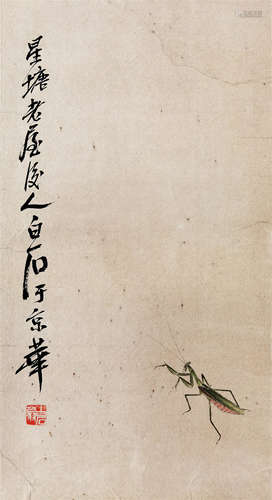 星塘老屋后人白石于京華